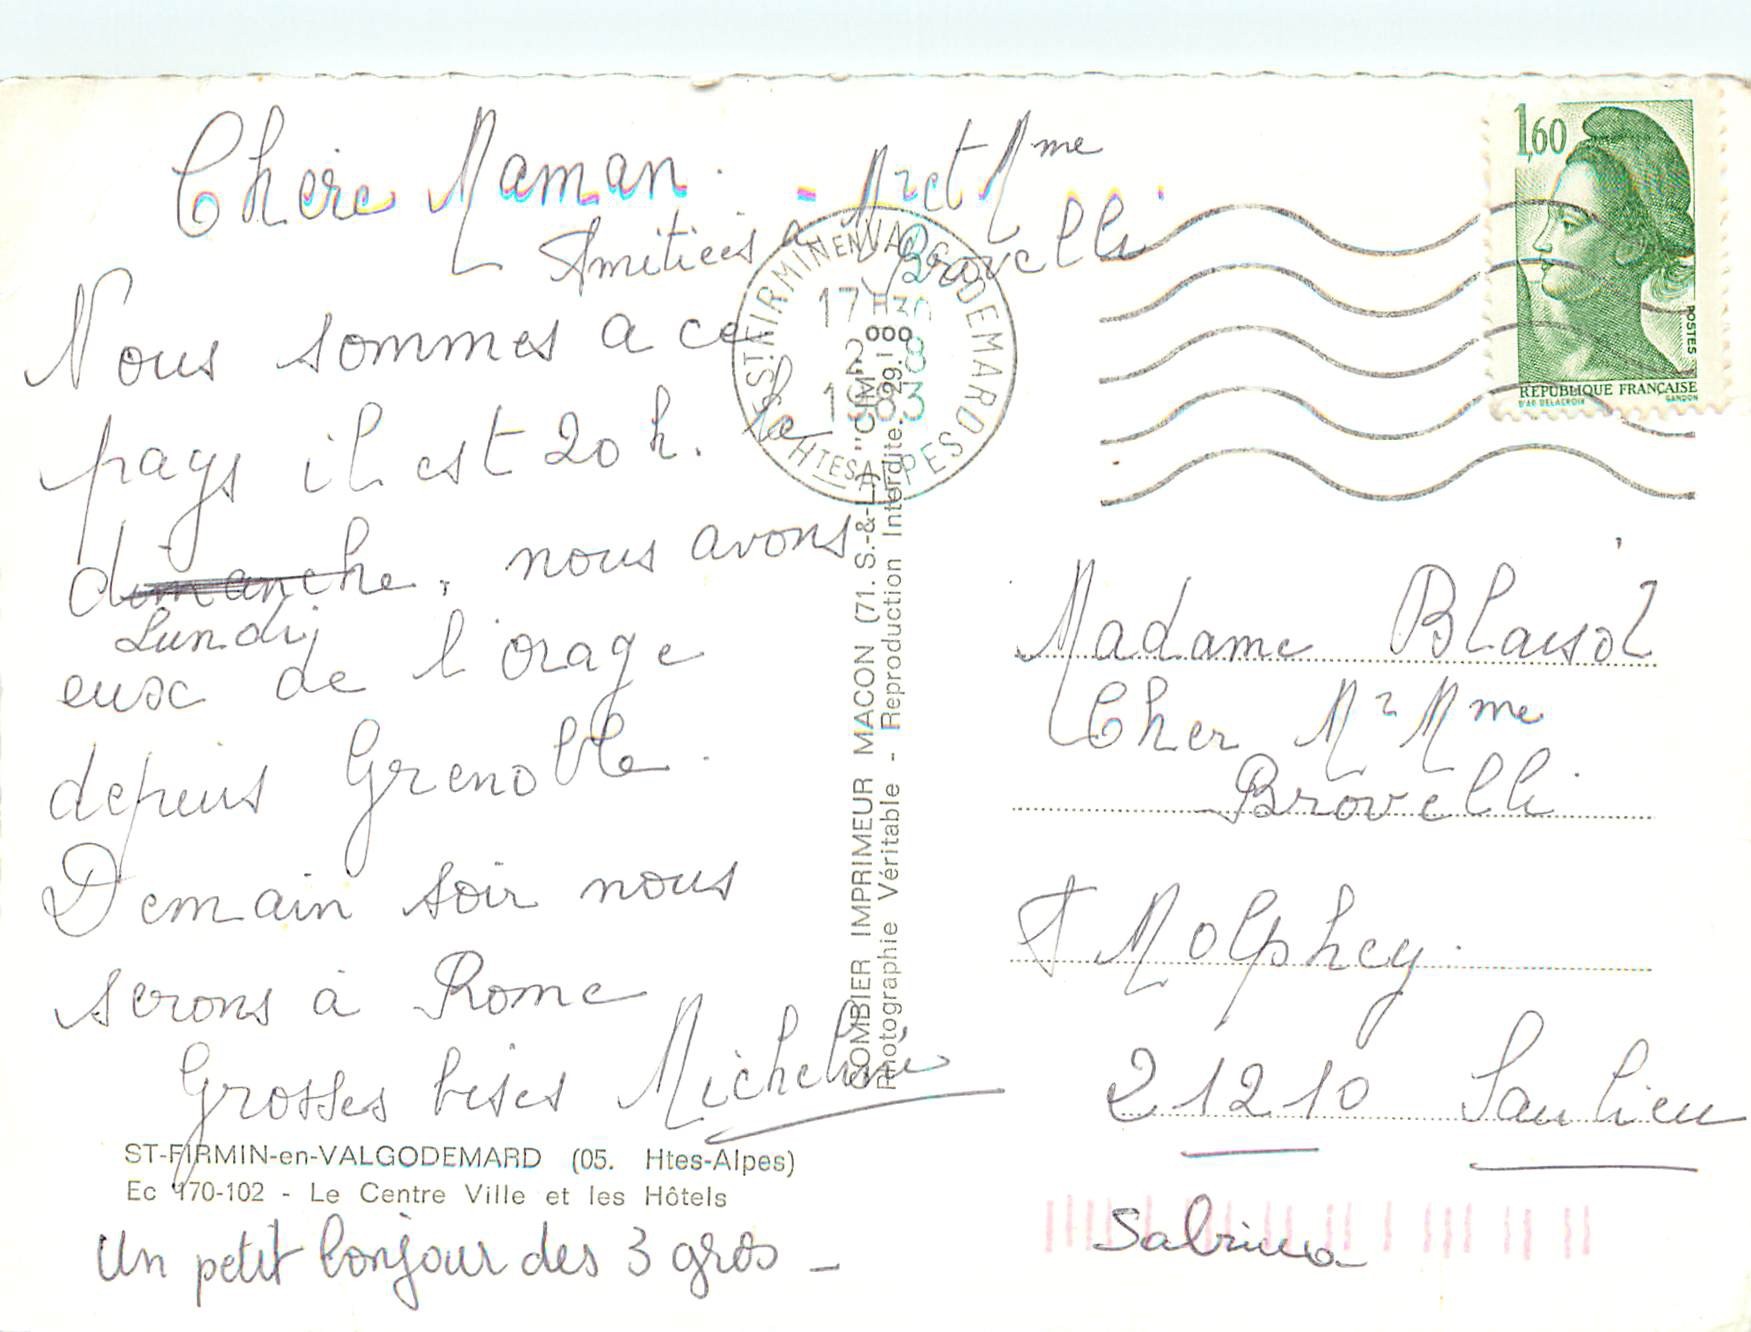 Chère Maman.
Amitiées à Mr et Mme
Brovelli
Nous sommes a ce
pays il est 20 h. le
dimanche, nous avons
Lundi
eux de l'orage
depuis Grenoble.
Demain soir nous
serons à Rome
Grosses bises Micheline
ST-FIRMIN-en-VALGODEMARD (05. Htes-Alpes)
Ec 170-102 - Le Centre Ville et les Hôtels
Un petit bonjour des 3 gros -
Sabrina
COMBIER IMPRIMEUR MACON (71. S.-&-L.) "CIM"
Photographie Véritable - Reproduction Interdite
ST FIRMIN EN VALGODEMARD
17H30
2 8
1983
HTES ALPES
1,60
POSTES
REPUBLIQUE FRANÇAISE
D'AP. DELACROIX GANDON
Madame Blaisot
Cher Mr Mme
Brovelli
Molphey.
21210 Saulieu